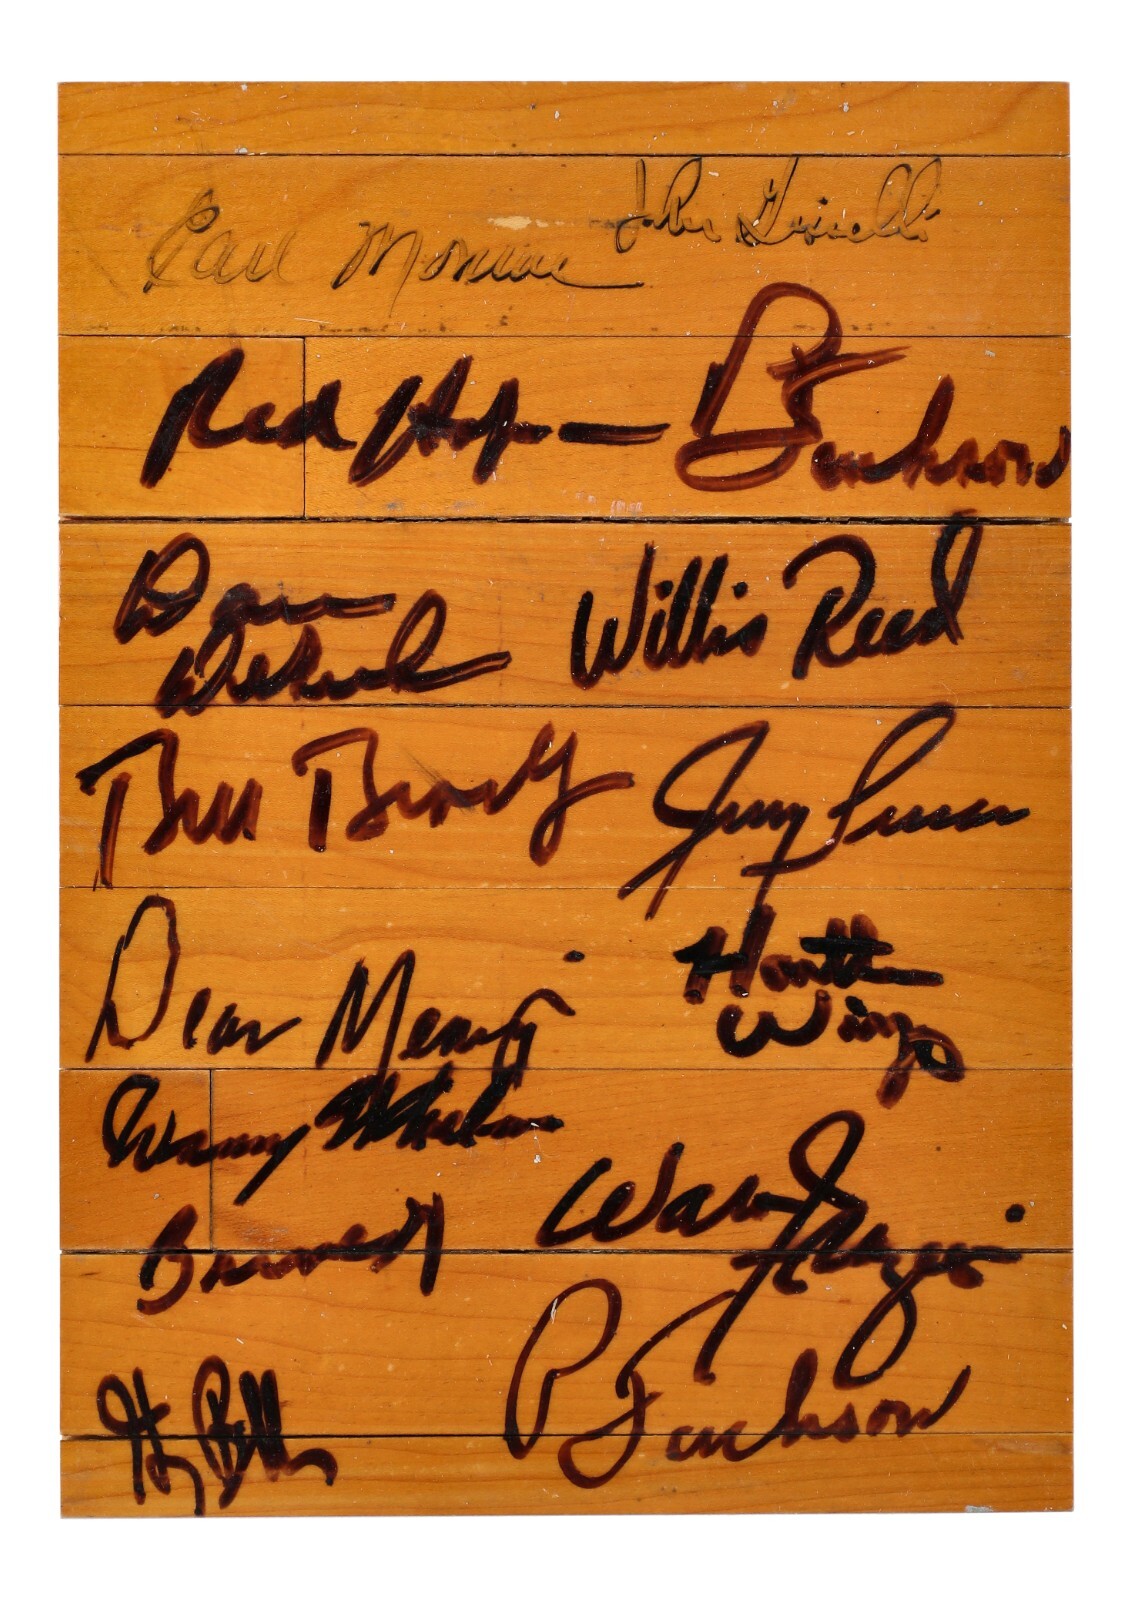 Earl Monroe
John Gianelli
Red Holzman
P Jackson
Dave
DeBusschere
Willis Reed
Bill Bradley
Jerry Lucas
Dean Meminger
Harthorne
Wingo
Danny Whelan
Walt
Frazier
Barnett
P Jackson
Henry Bibby